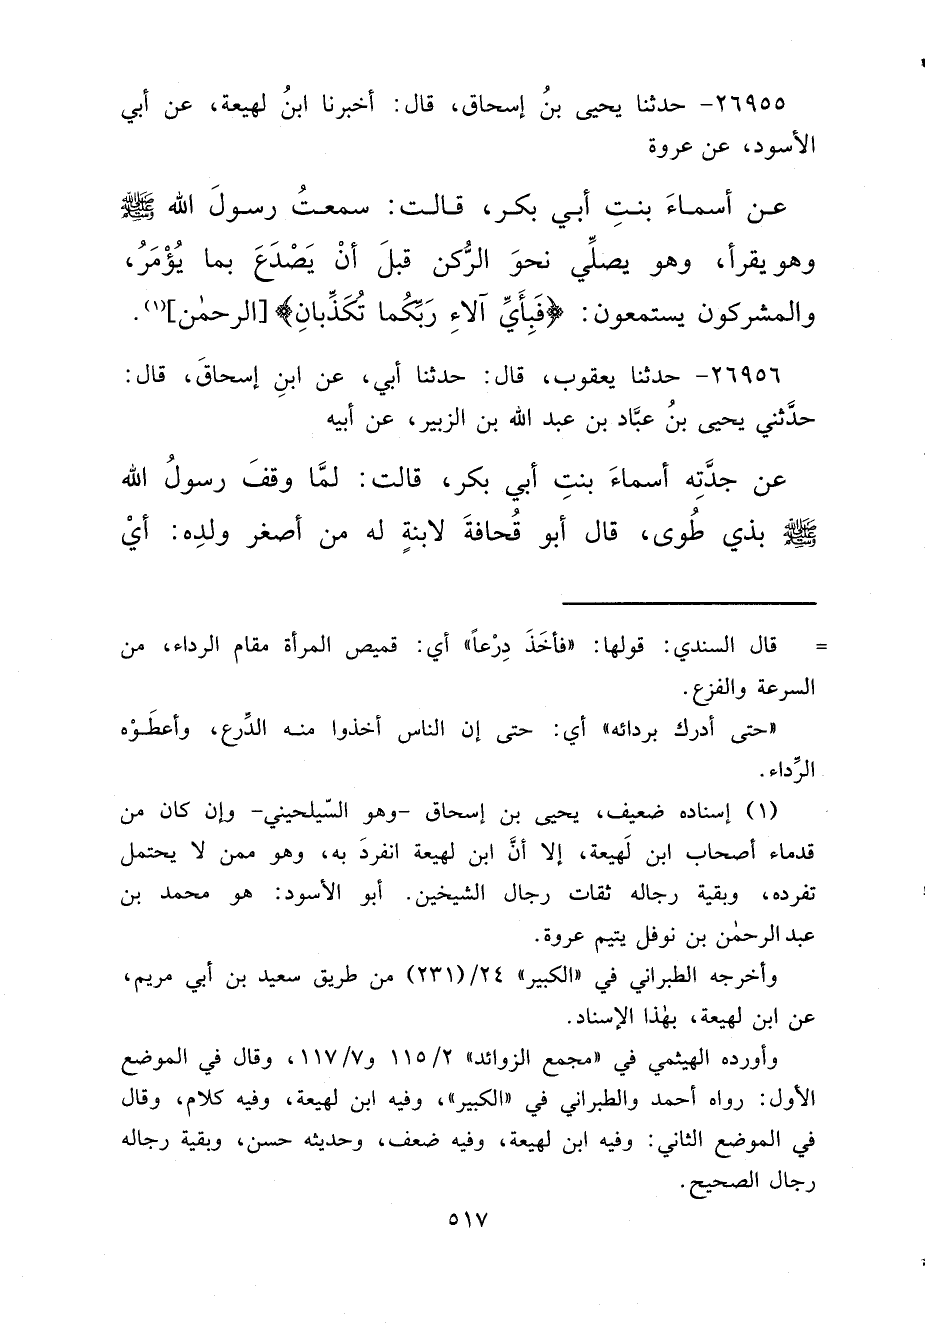 ٢٦٩٥٥- حدثنا يحيى بنُ إسحاق، قال: أخبرنا ابنُ لهيعة، عن أبي
الأسود، عن عروة
عن أسماءَ بنتِ أبي بكر، قالت: سمعتُ رسولَ الله ﷺ
وهو يقرأ، وهو يصلِّي نحوَ الرُّكن قبلَ أنْ يَصْدَعَ بما يُؤْمَرُ،
والمشركون يستمعون: ﴿فَبِأَيِّ آلاءِ رَبِّكُما تُكَذِّبانِ﴾ [الرحمٰن]⁽¹⁾.
٢٦٩٥٦- حدثنا يعقوب، قال: حدثنا أبي، عن ابنِ إسحاقَ، قال:
حدَّثني يحيى بنُ عبَّاد بن عبد الله بن الزبير، عن أبيه
عن جدَّتِه أسماءَ بنتِ أبي بكر، قالت: لمَّا وقفَ رسولُ الله
ﷺ بذي طُوى، قال أبو قُحافةَ لابنةٍ له من أصغر ولدِه: أيْ
= قال السندي: قولها: «فأخَذَ دِرْعاً» أي: قميص المرأة مقام الرداء، من
السرعة والفزع.
«حتى أدرك بردائه» أي: حتى إن الناس أخذوا منه الدِّرع، وأعطَوْه
الرِّداء.
(١) إسناده ضعيف، يحيى بن إسحاق -وهو السّيلحيني- وإن كان من
قدماء أصحاب ابن لَهيعة، إلا أنَّ ابن لهيعة انفردَ به، وهو ممن لا يحتمل
تفرده، وبقية رجاله ثقات رجال الشيخين. أبو الأسود: هو محمد بن
عبد الرحمٰن بن نوفل يتيم عروة.
وأخرجه الطبراني في «الكبير» ٢٤/(٢٣١) من طريق سعيد بن أبي مريم،
عن ابن لهيعة، بهٰذا الإسناد.
وأورده الهيثمي في «مجمع الزوائد» ١١٥/٢ و١١٧/٧، وقال في الموضع
الأول: رواه أحمد والطبراني في «الكبير»، وفيه ابن لهيعة، وفيه كلام، وقال
في الموضع الثاني: وفيه ابن لهيعة، وفيه ضعف، وحديثه حسن، وبقية رجاله
رجال الصحيح.
٥١٧